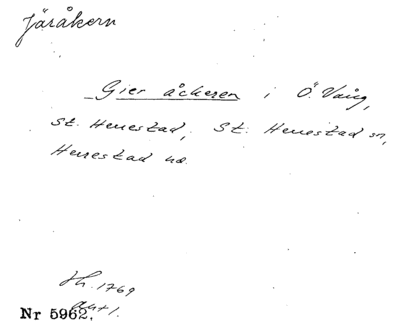 Järåkern
Gier åckeren i Ö. Vång,
St. Herrestad, St. Herrestad sn,
Herrestad hd.
Lh. 1769
akt 1.
Nr 5962.